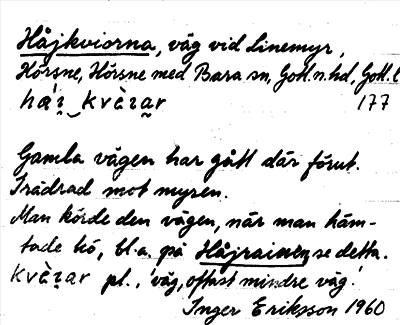 Håjkviorna, väg vid Linemyr,
Hörsne, Hörsne med Bara sn, Gotl. n. hd, Gotl. l
177
Gamla vägen har gått där förut.
Trädrad mot myren.
Man körde den vägen, när man häm-
tade hö, bl.a. på Håjrainen, se detta.
kvὲɪ̯ar pl., 'väg, oftast mindre väg'.
Inger Eriksson 1960